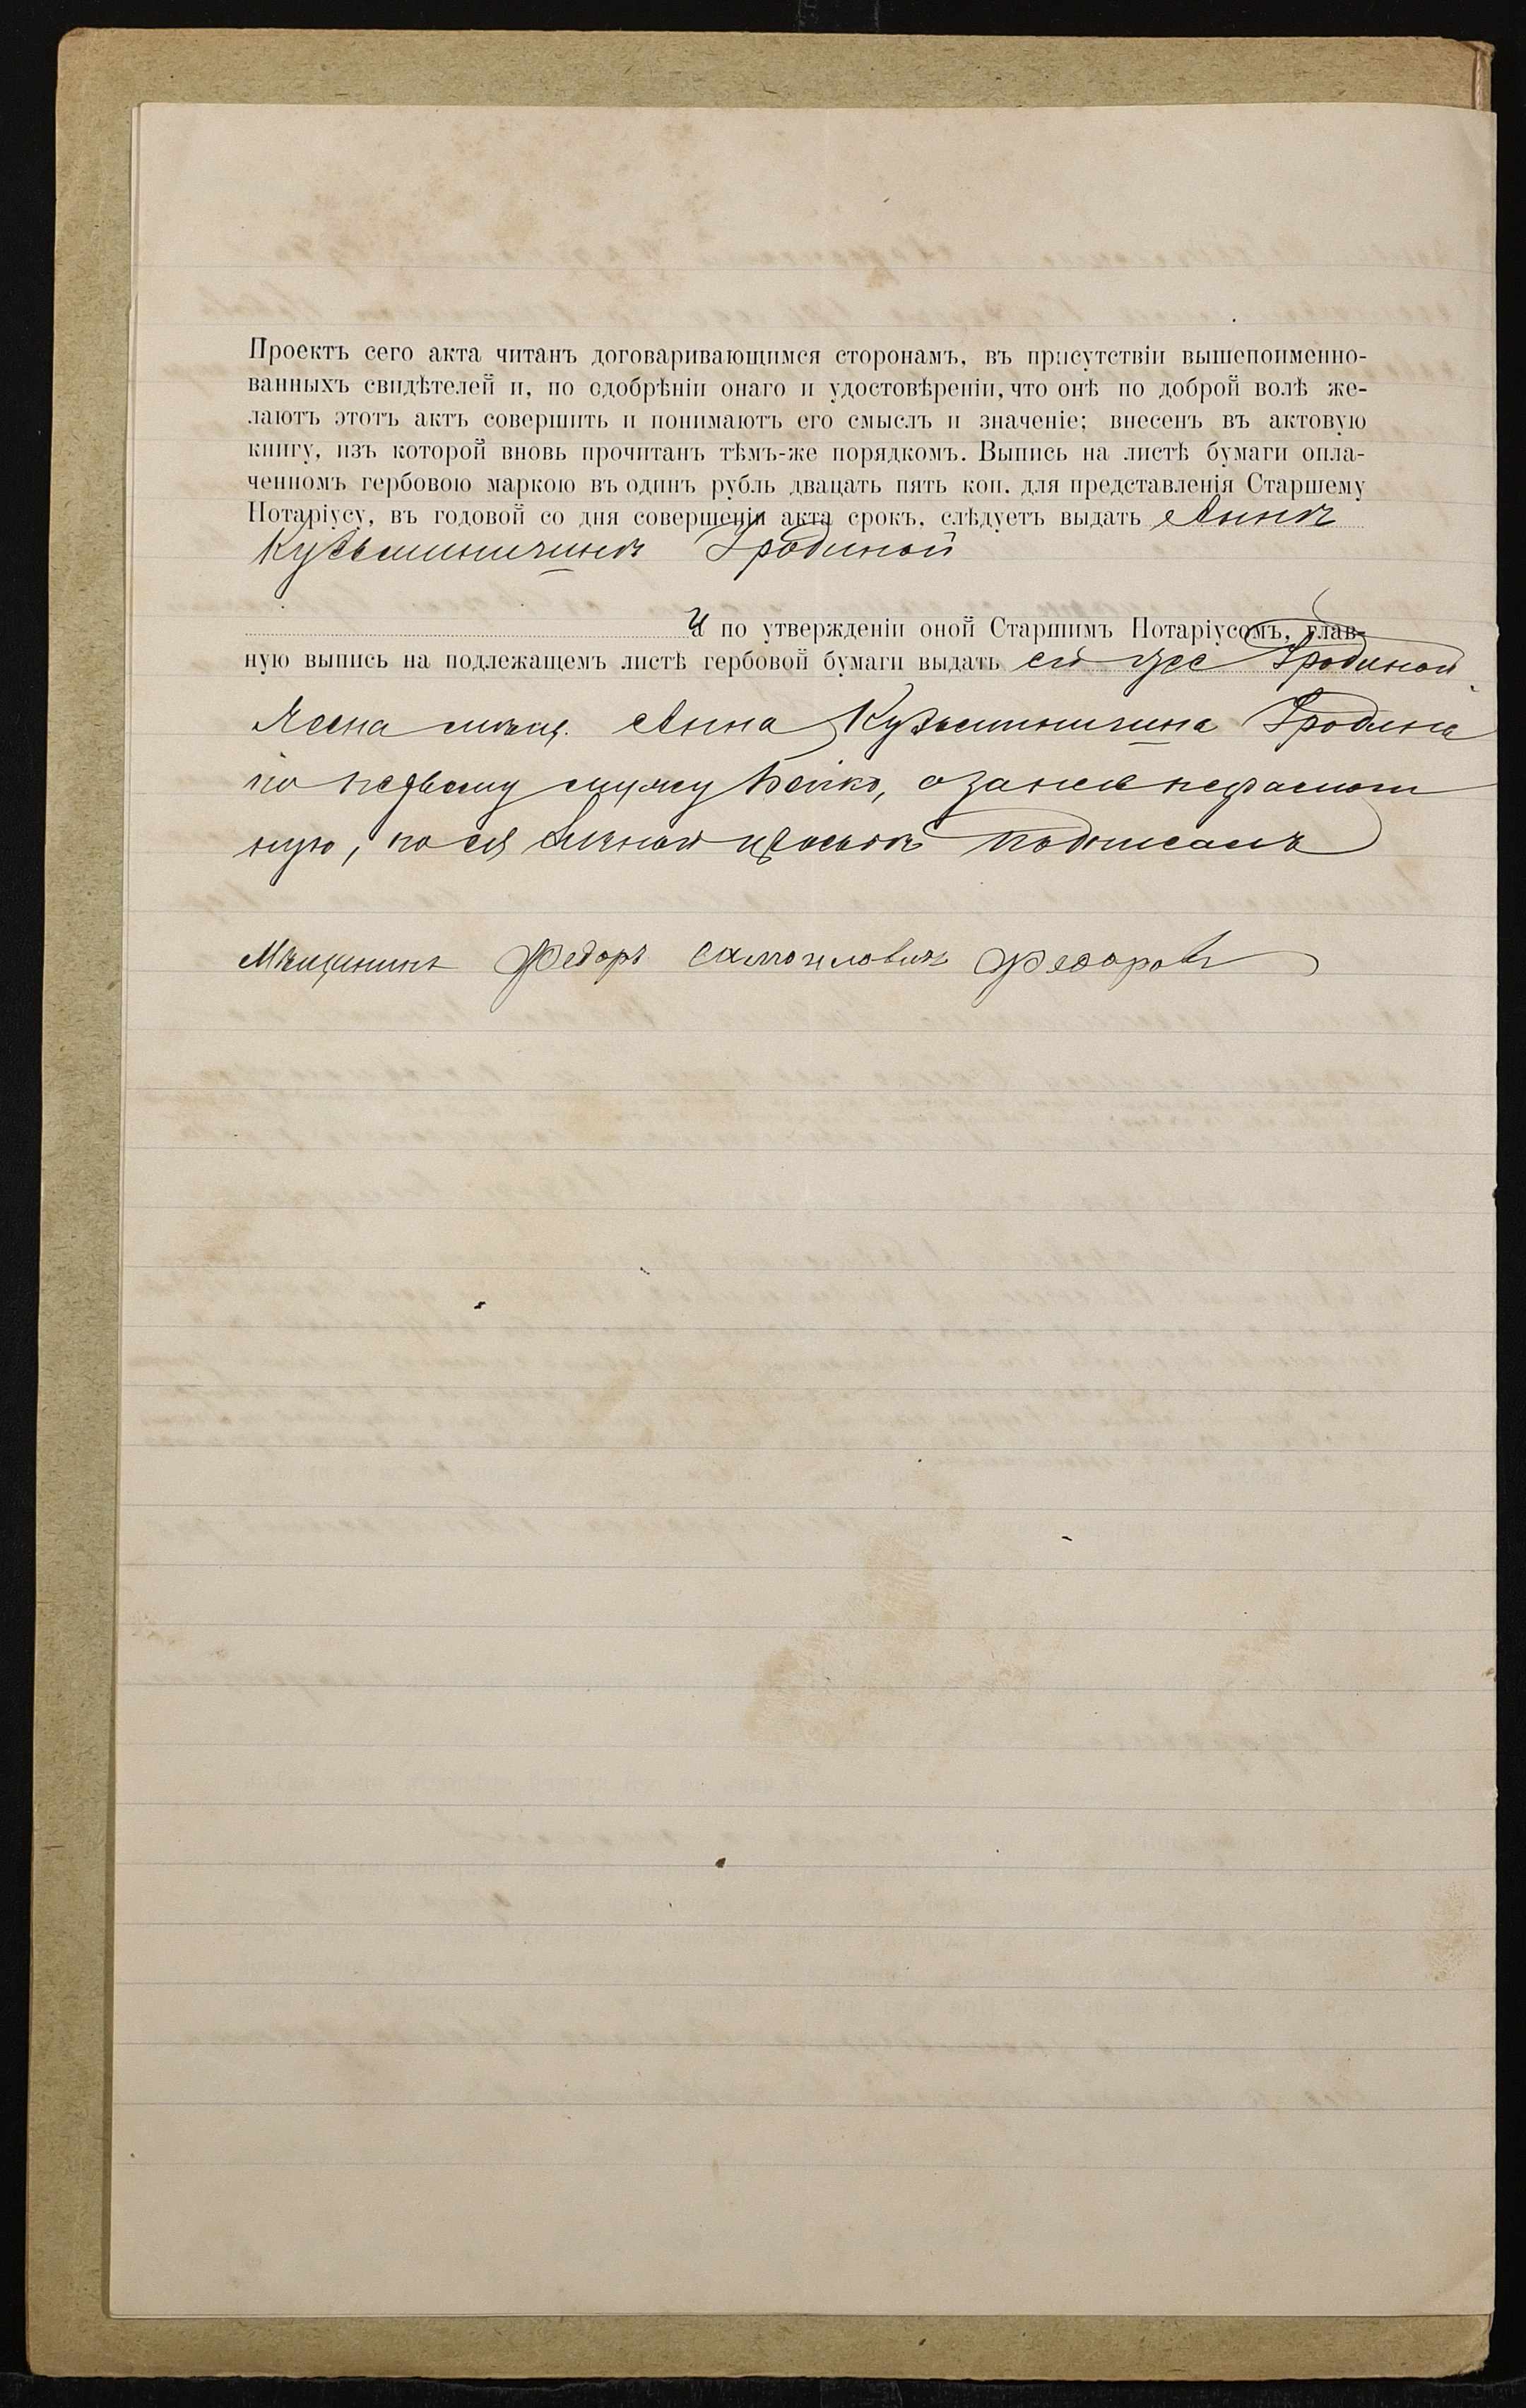 Проектъ сего акта читанъ договаривающимся сторонамъ, въ присутствіи вышепоименно-
ванныхъ свидѣтелей и, по одобрѣніи онаго и удостовѣреніи, что онѣ по доброй волѣ же-
лаютъ этотъ актъ совершить и понимаютъ его смыслъ и значеніе; внесенъ въ актовую
книгу, изъ которой вновь прочитанъ тѣмъ-же порядкомъ. Выпись на листѣ бумаги опла-
ченномъ гербовою маркою въ одинъ рубль двацать пять коп. для представленія Старшему
Нотаріусу, въ годовой со дня совершенія акта срокъ, слѣдуетъ выдать Аннѣ
Кузьминичинѣ Гродиной
И по утвержденіи оной Старшимъ Нотаріусомъ, глав-
ную выпись на подлежащемъ листѣ гербовой бумаги выдать ей же Гродиной
Жена мѣщ. Анна Кузьминичина Гродина
по первому мужу Бейко, а за нея неграмот
ную, по ея личной просьбѣ подписалъ
Мѣщининъ Федоръ Самойловичъ Федоровъ